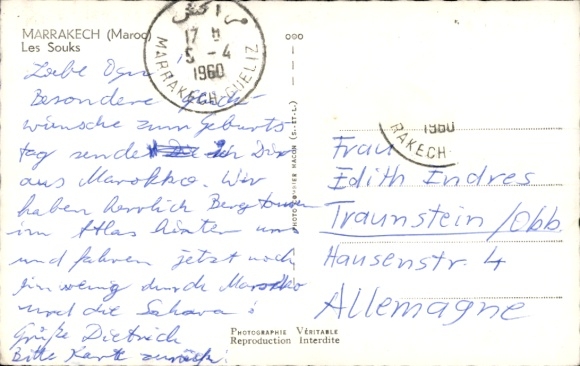 MARRAKECH (Maroc)
Les Souks
مراكش
17 H
5 - 4
1960
MARRAKECH-GUELIZ
Liebe Omi!
Besondere Glück-
wünsche zum Geburts
tag sende ich Dir
aus Marokko. Wir
haben herrlich Bergtouren
im Atlas hinter uns
und fahren jetzt noch
ein wenig durch Marokko
und die Sahara!
Grüße Dietrich
Bitte Karte zurück!
PHOTOGRAPHIE VÉRITABLE
Reproduction Interdite
1960
RAKECH
Frau
Edith Endres
Traunstein/Obb.
Hausenstr. 4
Allemagne